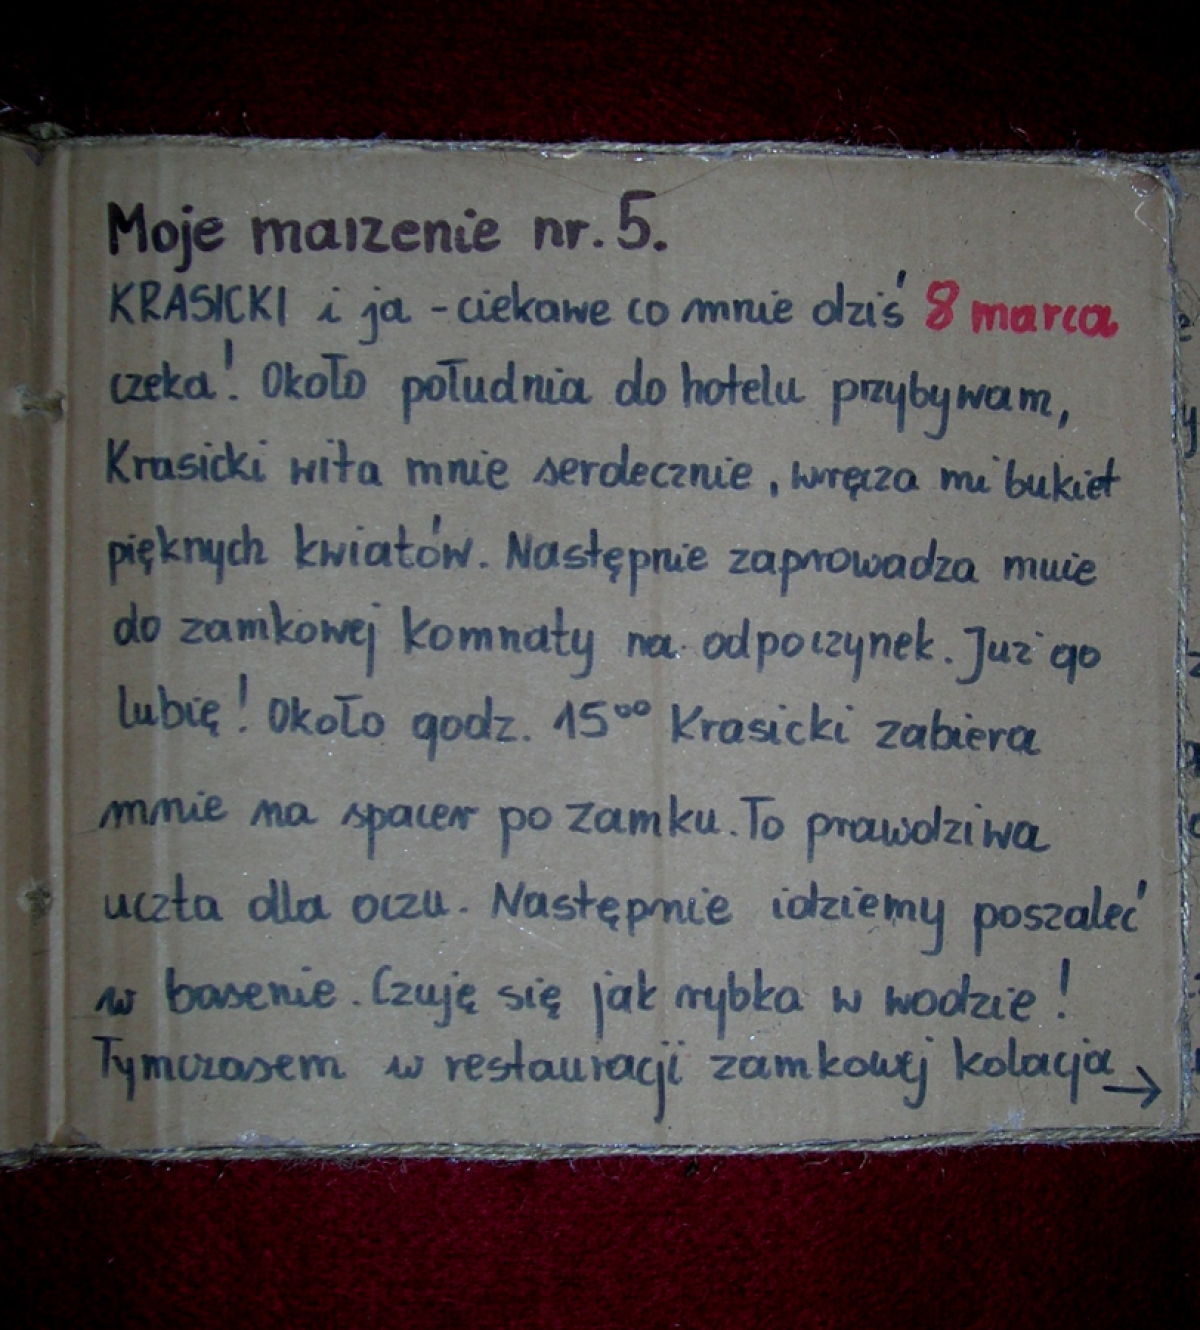 Moje marzenie nr. 5.
KRASICKI i ja - ciekawe co mnie dziś 8 marca
czeka! Około południa do hotelu przybywam,
Krasicki wita mnie serdecznie, wręcza mi bukiet
pięknych kwiatów. Następnie zaprowadza mnie
do zamkowej komnaty na odpoczynek. Już go
lubię! Około godz. 15⁰⁰ Krasicki zabiera
mnie na spacer po zamku. To prawdziwa
uczta dla oczu. Następnie idziemy poszaleć
w basenie. Czuję się jak rybka w wodzie!
Tymczasem w restauracji zamkowej kolacja →